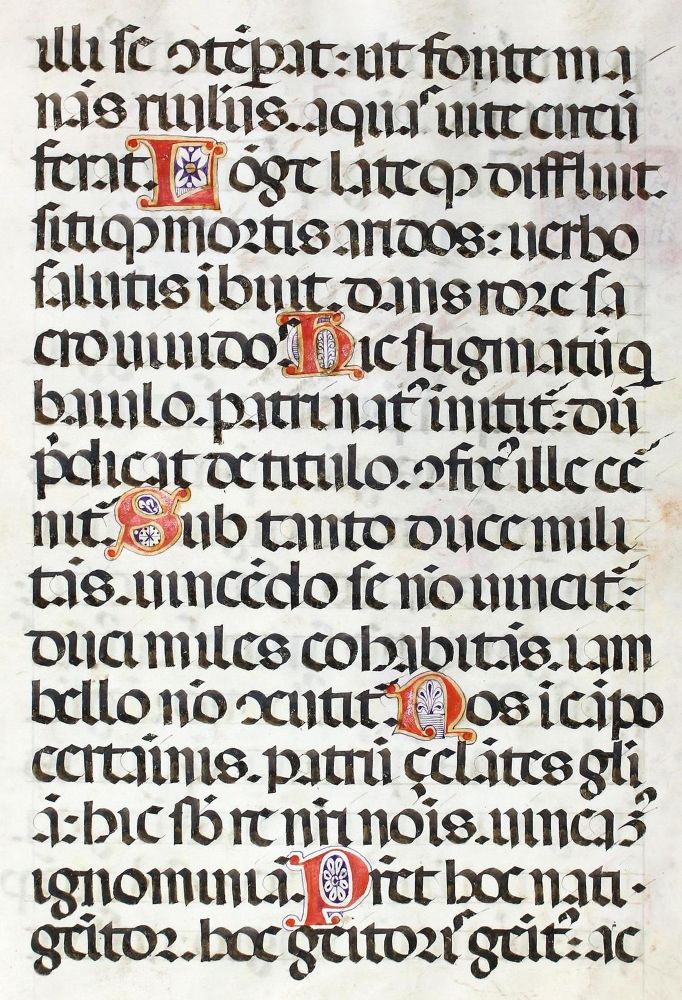 illi se ꝯtēpat: ut fonte ma
nās riuuliis. aquaˢ uite circū
ferat. Lōge lateqꝫ diffluit.
sitiqꝫ mortis aridos: uerbo
salutis ibuit. dans rore sa
cro mundo. Hic stigmatūq
baiulo. patri natꝰ initit᷑: dū
p̄dicat de titulo. ꝯfixꝰ ille cē
nit᷑. Sub tanto duce mili
tās. uincēdo se nō uincit᷑:
duci miles cohabitās. iam
bello nō ꝯcutit᷑. Nos i cāpo
certaīnis. patrū celātes glī
ā: hic sb̄ re nr̄i noīs. uincaꝫ
ignominiā. Pr̄et hoc nati
gēitor. hoc gēitorˢ gēitꝰ: ac